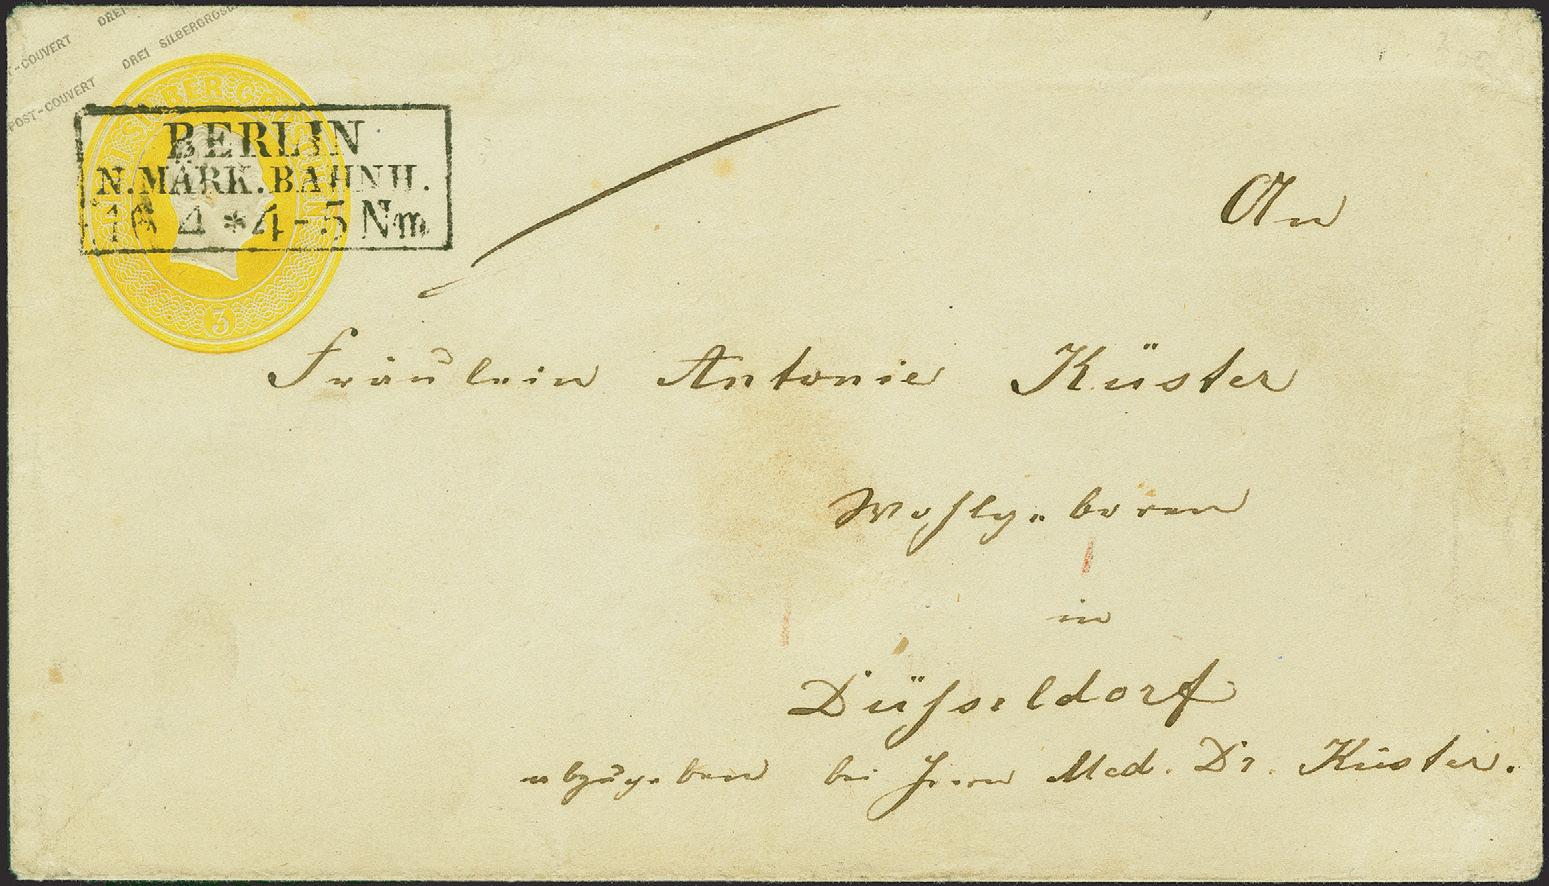 DREI
POST-COUVERT DREI SILBERGROSC
POST-COUVERT
DREI SILBER GR
3
BERLIN
N.MÄRK.BAHNH.
16 4 * 4-5 Nm
An
Fräulein Antonie Küster
Wohlgeboren
in
Düsseldorf
abzugeben bei Herrn Med. Dr. Küster.